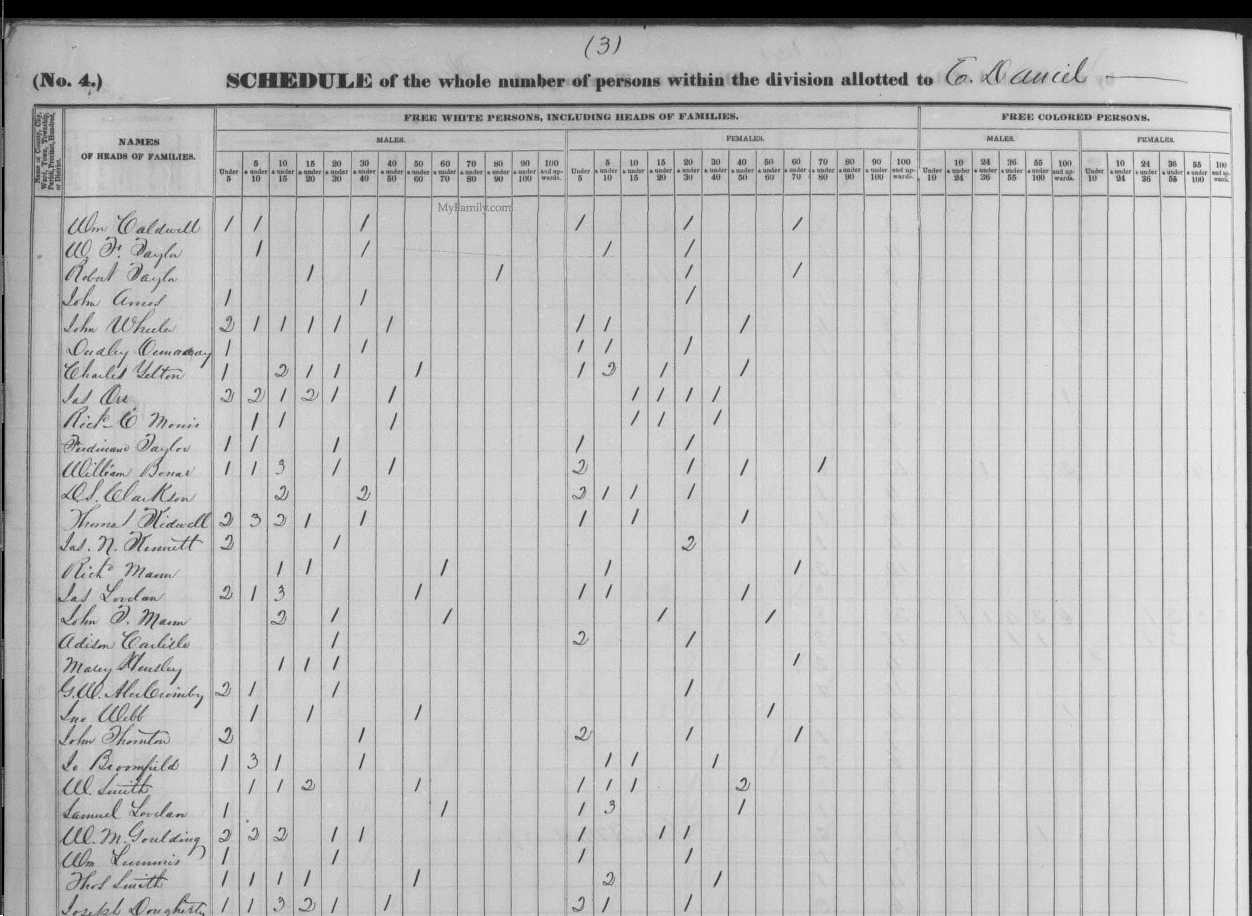 (3)
(No. 4.) SCHEDULE of the whole number of persons within the division allotted to E. Daniel
FREE WHITE PERSONS, INCLUDING HEADS OF FAMILIES. FREE COLORED PERSONS.
Name of County, City, Ward, Town, Township, Parish, Precinct, Hundred, or District. NAMES OF HEADS OF FAMILIES. MALES. FEMALES. MALES. FEMALES.
Under 5 5 & under 10 10 & under 15 15 & under 20 20 & under 30 30 & under 40 40 & under 50 50 & under 60 60 & under 70 70 & under 80 80 & under 90 90 & under 100 100 and upwards. Under 5 5 & under 10 10 & under 15 15 & under 20 20 & under 30 30 & under 40 40 & under 50 50 & under 60 60 & under 70 70 & under 80 80 & under 90 90 & under 100 100 and upwards. Under 10 10 & under 24 24 & under 36 36 & under 55 55 & under 100 100 and upwards. Under 10 10 & under 24 24 & under 36 36 & under 55 55 & under 100 100 and upwards.
MyFamily.com
Wm Caldwell 1 1 1 1 1 1
W. F. Taylor 1 1 1 1
Robert Taylor 1 1 1 1
John Amos 1 1 1
John Wheeler 2 1 1 1 1 1 1 1 1
Dudley 1 1 1 1 1
Charles Yelton 1 2 1 1 1 1 2 1 1
Jas Orr 2 2 1 2 1 1 1 1 1 1
Rich C Morris 1 1 1 1 1 1
Ferdinand Taylor 1 1 1 1 1
William Bonar 1 1 3 1 1 2 1 1 1
D. S. Clarkson 2 2 2 1 1 1
Thomas Kidwell 2 3 2 1 1 1 1 1
Jas. N. Kennett 2 1 2
Richd Mann 1 1 1 1 1
Jas Lovelan 2 1 3 1 1 1 1
John F. Mann 2 1 1 1 1
Adison Carlisle 1 2 1
Hensley 1 1 1 1
G. W. AberCromby 2 1 1 1
Jno Webb 1 1 1 1
John Thornton 2 1 2 1 1
Jo Broomfield 1 3 1 1 1 1 1
W. Smith 1 1 2 1 1 1 1 2
Samuel Lovelan 1 1 1 3 1
W. M. Goulding 2 2 2 1 1 1 1 1
Wm Lummis 1 1 1 1
Thos Smith 1 1 1 1 1 2 1
Joseph Dougherty 1 1 3 2 1 1 2 1 1